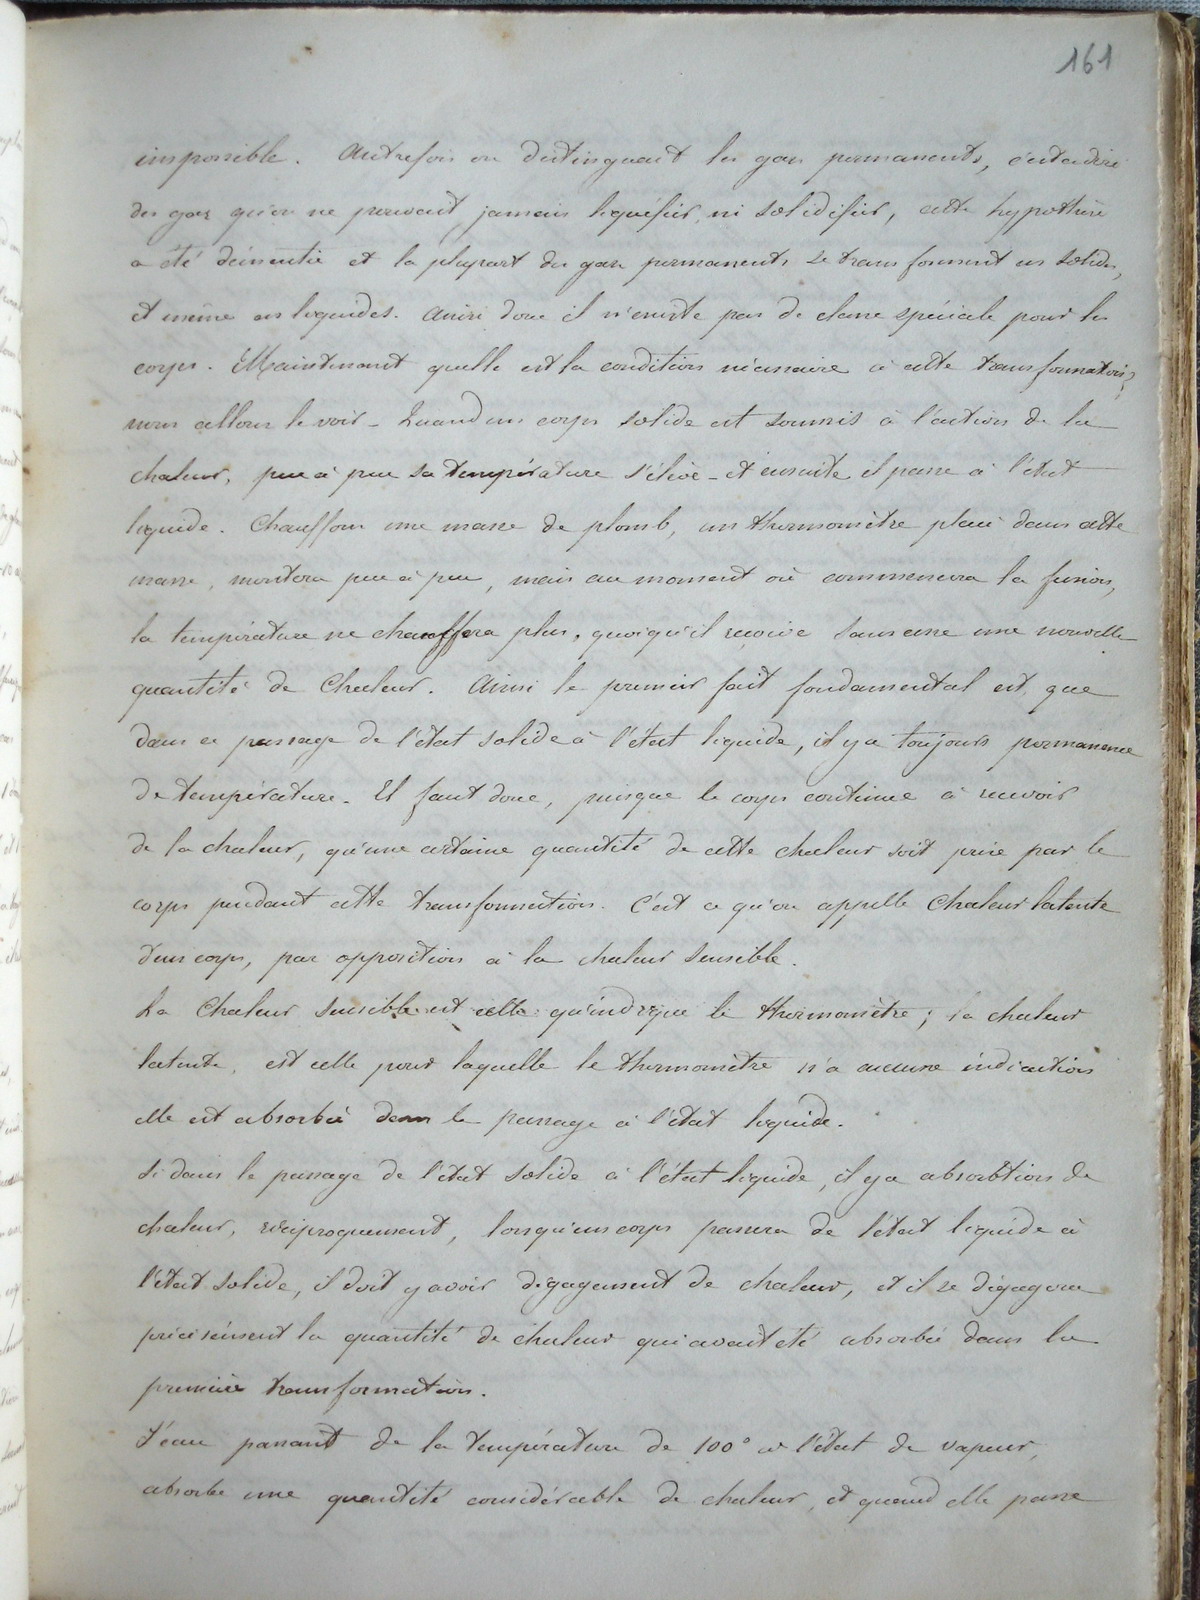 161
impossible. Autrefois on distinguait les gaz permanents, c'est à dire
des gaz qu'on ne pouvait jamais liquéfier ni solidifier, cette hypothèse
a été démentie et la plupart des gaz permanents se transforment en solides,
et même en liquides. Ainsi donc il n'existe pas de classe spéciale pour les
corps. Maintenant quelle est la condition nécessaire à cette transformation?
nous allons le voir - Quand un corps solide est soumis à l'action de la
chaleur, peu à peu sa température s'élève - et ensuite il passe à l'état
liquide. Chauffons une masse de plomb, un thermomètre placé dans cette
masse, montera peu à peu, mais au moment où commencera la fusion,
la température ne chauffera plus, quoiqu'il reçoive sans cesse une nouvelle
quantité de Chaleur. Ainsi le premier fait fondamental est, que
dans ce passage de l'état solide à l'état liquide, il y a toujours permanence
de température. Il faut donc, puisque le corps continue à recevoir
de la chaleur, qu'une certaine quantité de cette chaleur soit prise par le
corps pendant cette transformation. C'est ce qu'on appelle Chaleur latente
d'un corps, par opposition à la chaleur sensible.
La Chaleur sensible est celle qu'indique le thermomètre; la chaleur
latente, est celle pour laquelle le thermomètre n'a aucune indication
elle est absorbée dans le passage à l'état liquide.
Si dans le passage de l'état solide à l'état liquide, il y a absorbtion de
chaleur, réciproquement, lorsqu'un corps passera de l'état liquide à
l'état solide, il doit y avoir dégagement de chaleur, et il se dégagera
précisément la quantité de chaleur qui avait été absorbée dans la
première transformation.
L'eau passant de la température de 100° à l'état de vapeur,
absorbe une quantité considérable de chaleur, et quand elle passe